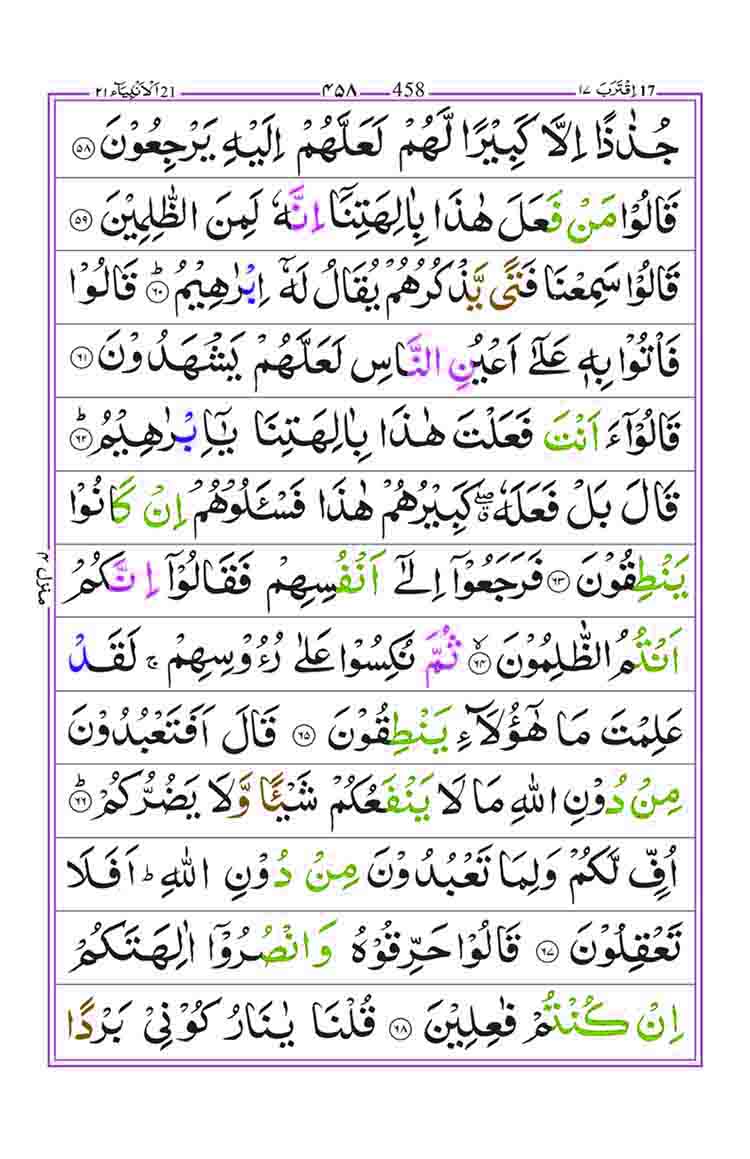 17 اِقْتَرَبَ ١٧ 458 ۴۵۸ 21 اَلْاَنْۢبِيَآء ٢١
جُذٰذًا اِلَّا كَبِيْرًا لَّهُمْ لَعَلَّهُمْ اِلَيْهِ يَرْجِعُوْنَ ﴿۵۸﴾
قَالُوْا مَنْ فَعَلَ هٰذَا بِاٰلِهَتِنَاۤ اِنَّهٗ لَمِنَ الظّٰلِمِيْنَ ﴿۵۹﴾
قَالُوْا سَمِعْنَا فَتًى يَّذْكُرُهُمْ يُقَالُ لَهٗۤ اِبْرٰهِيْمُ ؕ﴿۶۰﴾ قَالُوْا
فَاْتُوْا بِهٖ عَلٰٓى اَعْيُنِ النَّاسِ لَعَلَّهُمْ يَشْهَدُوْنَ ﴿۶۱﴾
قَالُوْۤا ءَاَنْتَ فَعَلْتَ هٰذَا بِاٰلِهَتِنَا يٰۤاِبْرٰهِيْمُ ؕ﴿۶۲﴾
قَالَ بَلْ فَعَلَهٗ ۖۗ كَبِيْرُهُمْ هٰذَا فَسْـَٔلُوْهُمْ اِنْ كَانُوْا
يَنْطِقُوْنَ ﴿۶۳﴾ فَرَجَعُوْۤا اِلٰٓى اَنْفُسِهِمْ فَقَالُوْۤا اِنَّكُمْ
اَنْتُمُ الظّٰلِمُوْنَ ۙ﴿۶۴﴾ ثُمَّ نُكِسُوْا عَلٰى رُءُوْسِهِمْ ۚ لَقَدْ
عَلِمْتَ مَا هٰۤؤُلَآءِ يَنْطِقُوْنَ ﴿۶۵﴾ قَالَ اَفَتَعْبُدُوْنَ
مِنْ دُوْنِ اللّٰهِ مَا لَا يَنْفَعُكُمْ شَيْـًٔا وَّلَا يَضُرُّكُمْ ؕ﴿۶۶﴾
اُفٍّ لَّكُمْ وَلِمَا تَعْبُدُوْنَ مِنْ دُوْنِ اللّٰهِ ؕ اَفَلَا
تَعْقِلُوْنَ ﴿۶۷﴾ قَالُوْا حَرِّقُوْهُ وَانْصُرُوْۤا اٰلِهَتَكُمْ
اِنْ كُنْتُمْ فٰعِلِيْنَ ﴿۶۸﴾ قُلْنَا يٰنَارُ كُوْنِيْ بَرْدًا
منزل ۴